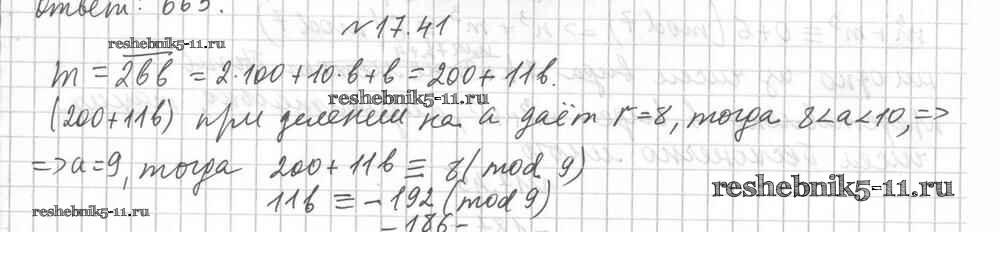 Ответ: 665.
№17.41
reshebnik5-11.ru
m = 2вв = 2·100+10·в+в = 200+11в.
reshebnik5-11.ru
(200+11в) при делении на а даёт r=8, тогда 8<a<10, =>
=> a=9, тогда 200+11в ≡ 8 (mod 9)
reshebnik5-11.ru
11в ≡ -192 (mod 9)
reshebnik5-11.ru
-186-